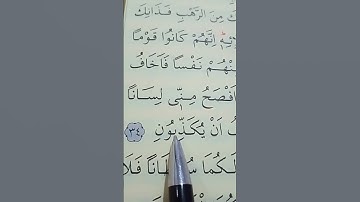 مِنَ الرَّهْبِ فَذَانِكَ
اِنَّهُمْ كَانُوا قَوْمًا
مِنْهُمْ نَفْسًا فَاَخَافُ
اَفْصَحُ مِنّ۪ي لِسَانًا
اَنْ يُكَذِّبُونِ ﴿٣٤﴾
لَكُمَا سُلْطَانًا فَلَا